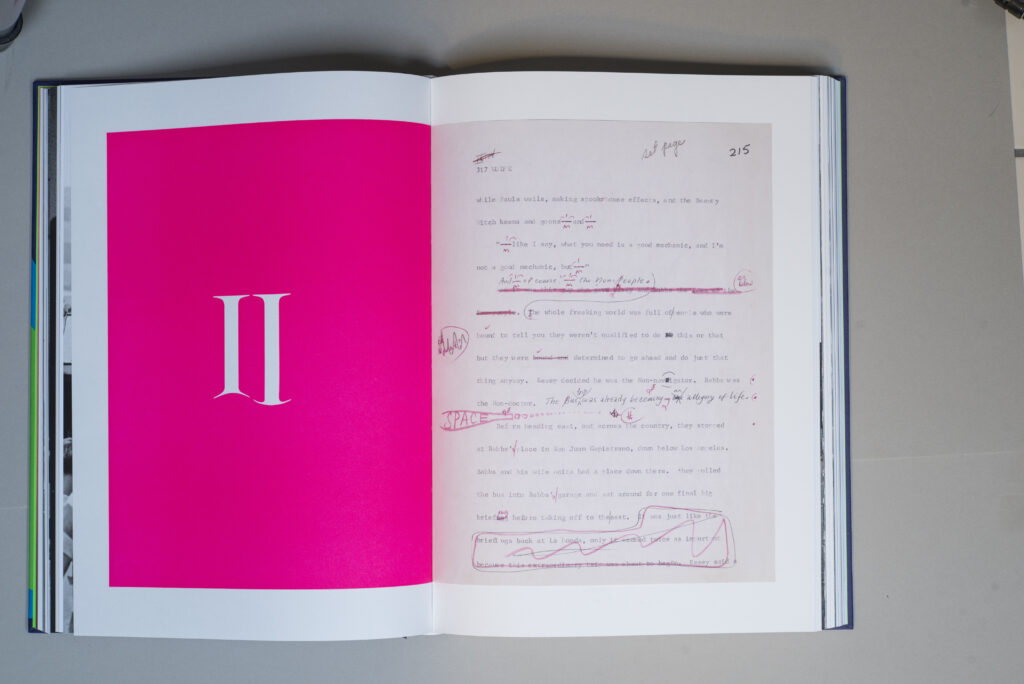 II
set page
215
317 WOLFE
while Paula wails, making spookhouse effects, and the Beauty
Witch keens and goons — and —
"—like I say, what you need is a good mechanic, and I'm
not a good mechanic, but—"
And — of course — the Non-People.
The whole freaking world was full of people who were
bound to tell you they weren't qualified to do this or that
but they were determined to go ahead and do just that
thing anyway. Kesey decided he was the Non-navigator. Babbs was
the Non-doctor. The Bus trip was already becoming an allegory of life.
SPACE
Before heading east, out across the country, they stopped
at Babbs's place in San Juan Capistrano, down below Los Angeles.
Babbs and his wife Anita had a place down there. They pulled
the bus into Babbs's garage and sat around for one final big
briefing before taking off to the east. It was just like the
briefings back at La Honda, only it seemed twice as important
because this extraordinary trip was about to begin. Kesey said a